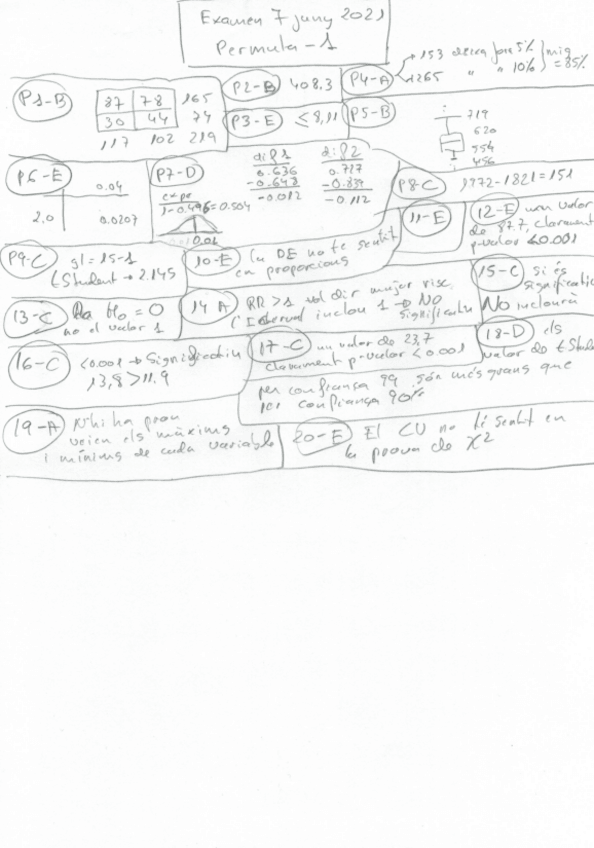 Examen 7 juny 2021
Permuta - 1
P1-B
87 78 165
30 44 74
117 102 219
P2-B 408.3
P3-E ≤ 8,91
P4-A
153 per 5%
1265 " " 10%
mig = 85%
P5-B
719
620
554
456
P6-E
0.04
2.0 0.0207
P7-D
dif 1 dif 2
0.636 0.727
-0.648 -0.839
-0.012 -0.112
1-0.496=0.504
0.01
P8-C 1972-1821=151
P9-C gl = 15-1
t Student → 2.145
10-E La DE no te sentit
en proporcions
11-E
12-E un valor
de 87.7, clarament
p-valor <0.001
13-C La Ho = 0
no el valor 1
14 A RR > 1 vol dir major risc,
l'Interval inclou 1 → NO
significatiu
15-C si és
significatiu
No inclourà
16-C <0.001 → Significatiu
13,8 > 11.9
17-C un valor de 23,7
clarament p-valor < 0.001
18-D els
valor de t Stude
per confiança 99 són més grans que
per confiança 90%
19-A N'hi ha prou
veien els màxims
i mínims de cada variable
20-E El CV no té sentit en
la prova de χ2